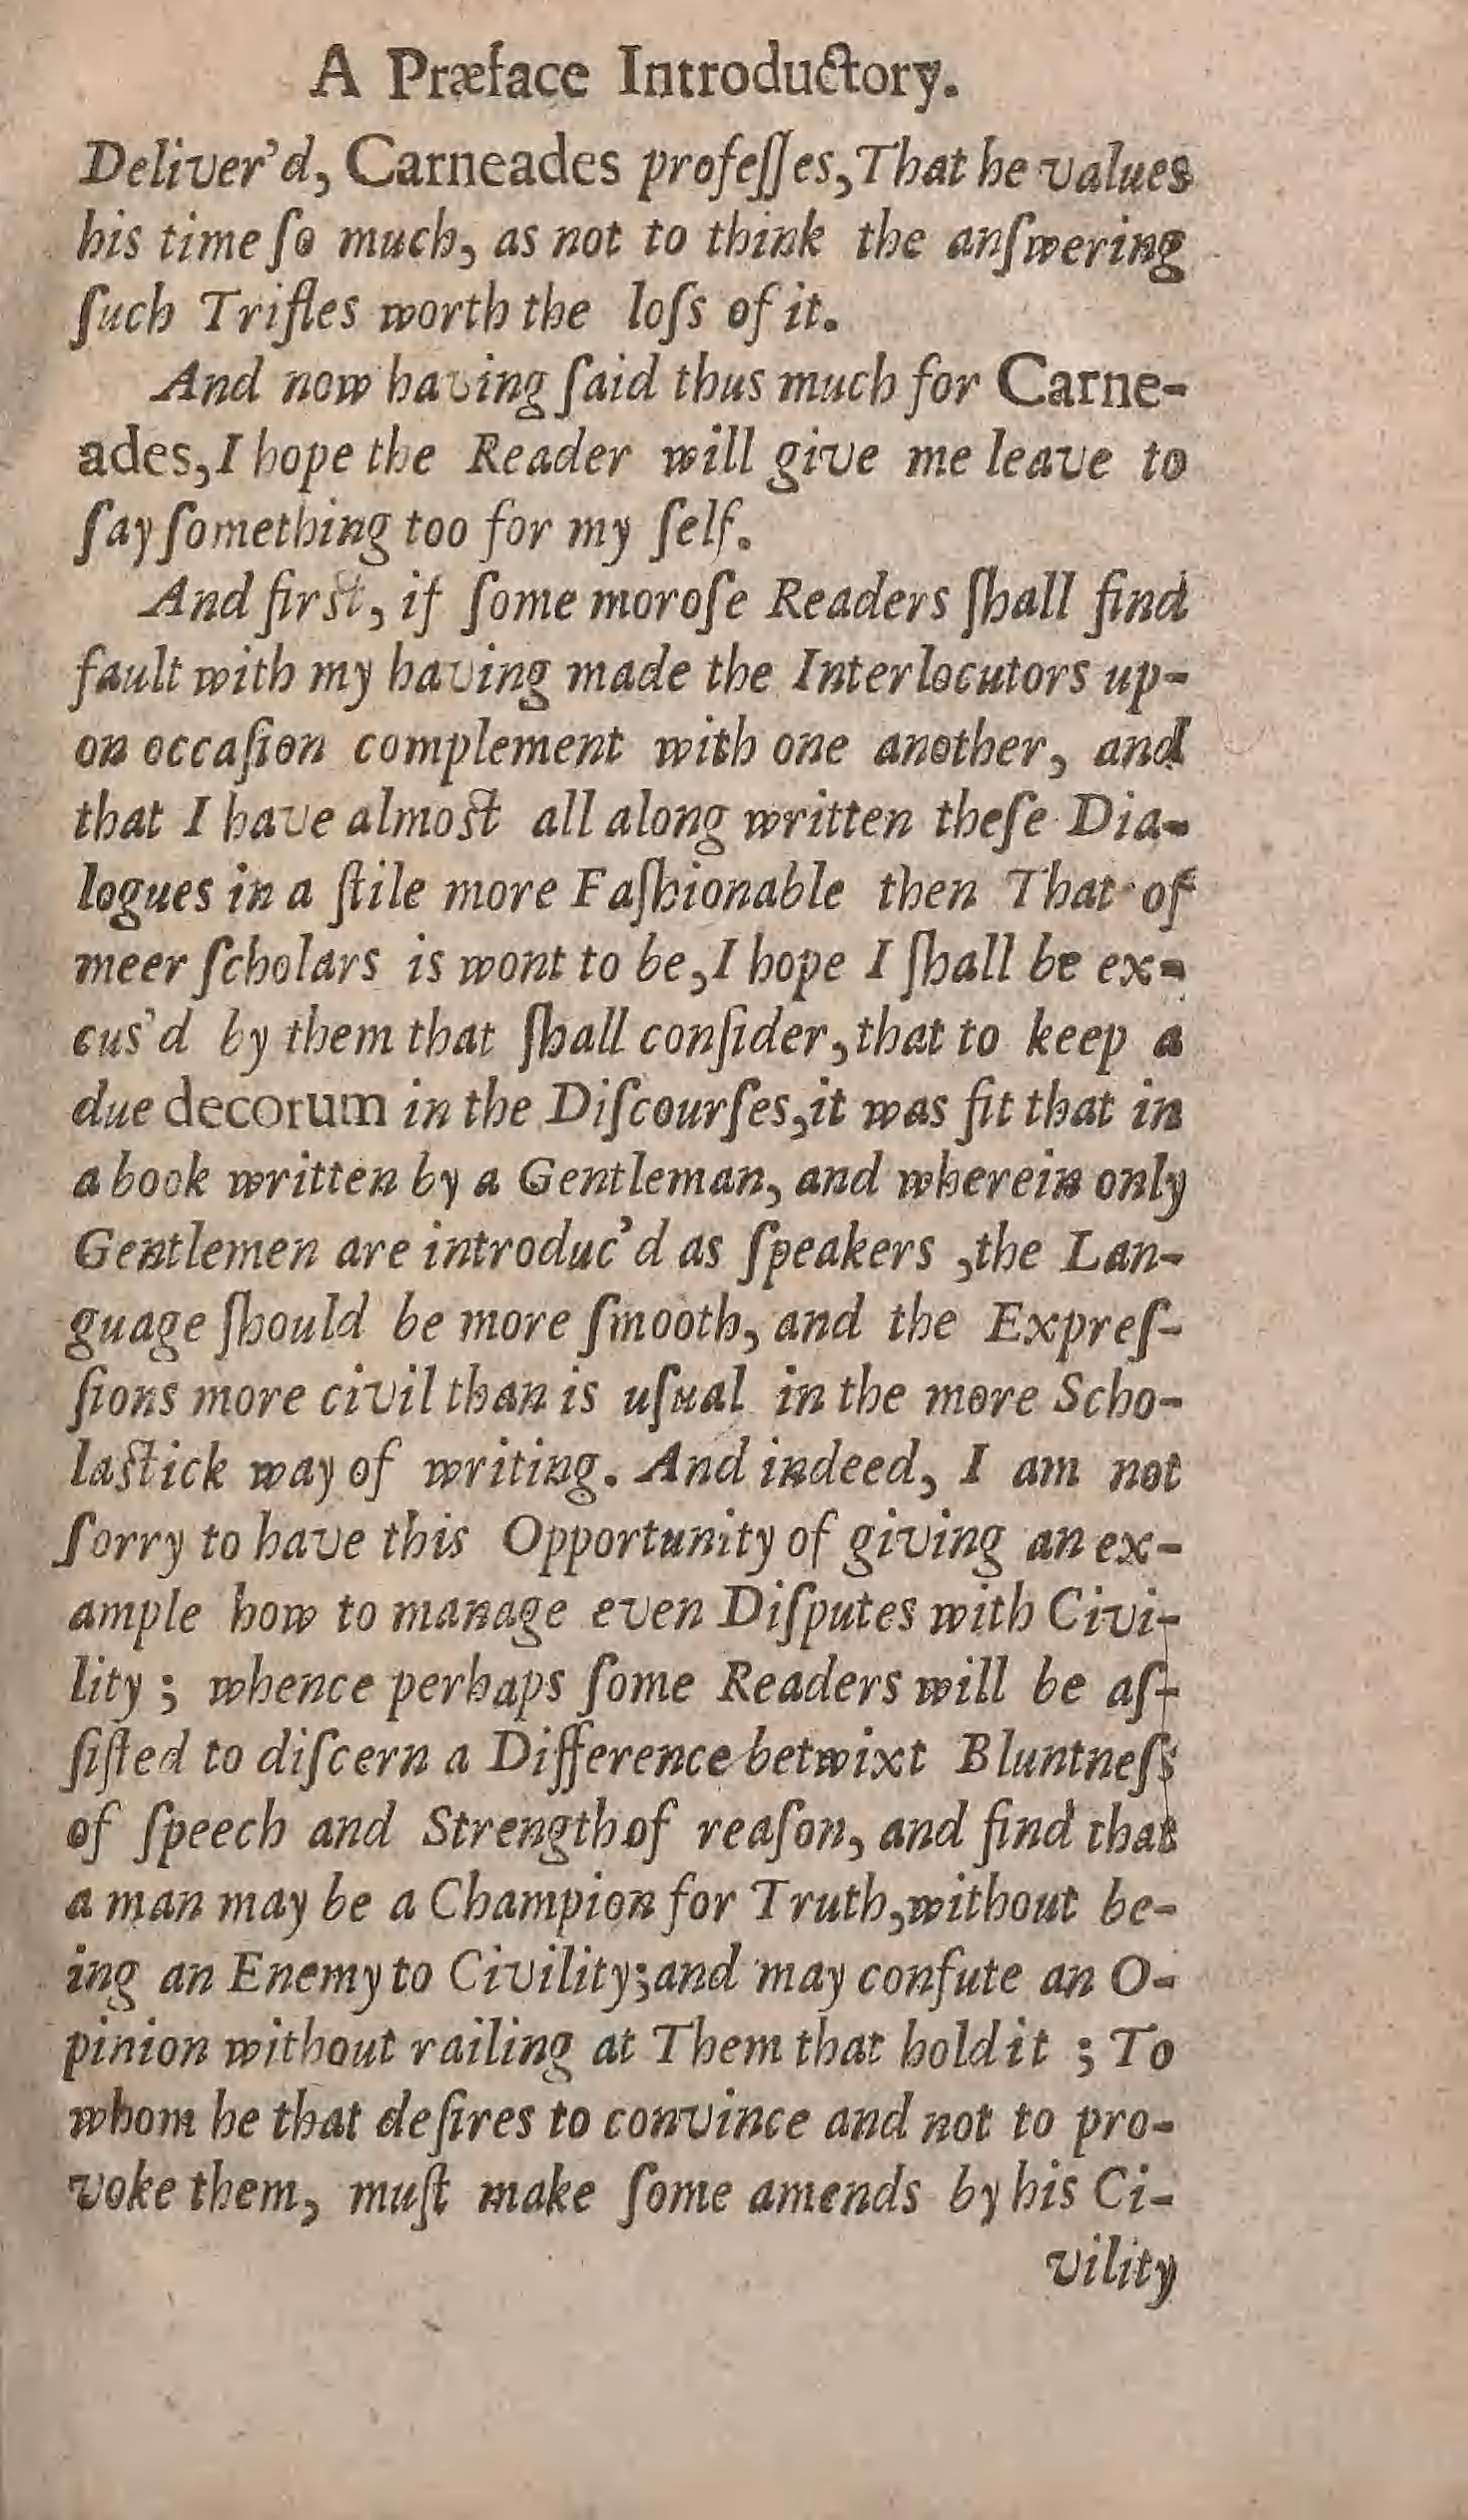 A Præface Introductory.
Deliver'd, Carneades profeſſes, That he values
his time ſo much, as not to think the anſwering
ſuch Trifles worth the loſs of it.
And now having ſaid thus much for Carne-
ades, I hope the Reader will give me leave to
ſay ſomething too for my ſelf.
And first, if ſome moroſe Readers ſhall find
fault with my having made the Interlocutors up-
on occaſion complement with one another, and
that I have almost all along written theſe Dia-
logues in a ſtile more Faſhionable then That of
meer ſcholars is wont to be, I hope I ſhall be ex-
cus'd by them that ſhall conſider, that to keep a
due decorum in the Diſcourſes, it was fit that in
a book written by a Gentleman, and wherein only
Gentlemen are introduc'd as ſpeakers, the Lan-
guage ſhould be more ſmooth, and the Expreſ-
ſions more civil than is uſual in the more Scho-
lastick way of writing. And indeed, I am not
ſorry to have this Opportunity of giving an ex-
ample how to manage even Diſputes with Civi-
lity; whence perhaps ſome Readers will be aſ-
ſiſted to diſcern a Difference betwixt Bluntneſs
of ſpeech and Strength of reaſon, and find that
a man may be a Champion for Truth, without be-
ing an Enemy to Civility; and may confute an O-
pinion without railing at Them that hold it; To
whom he that deſires to convince and not to pro-
voke them, muſt make ſome amends by his Ci-
vility